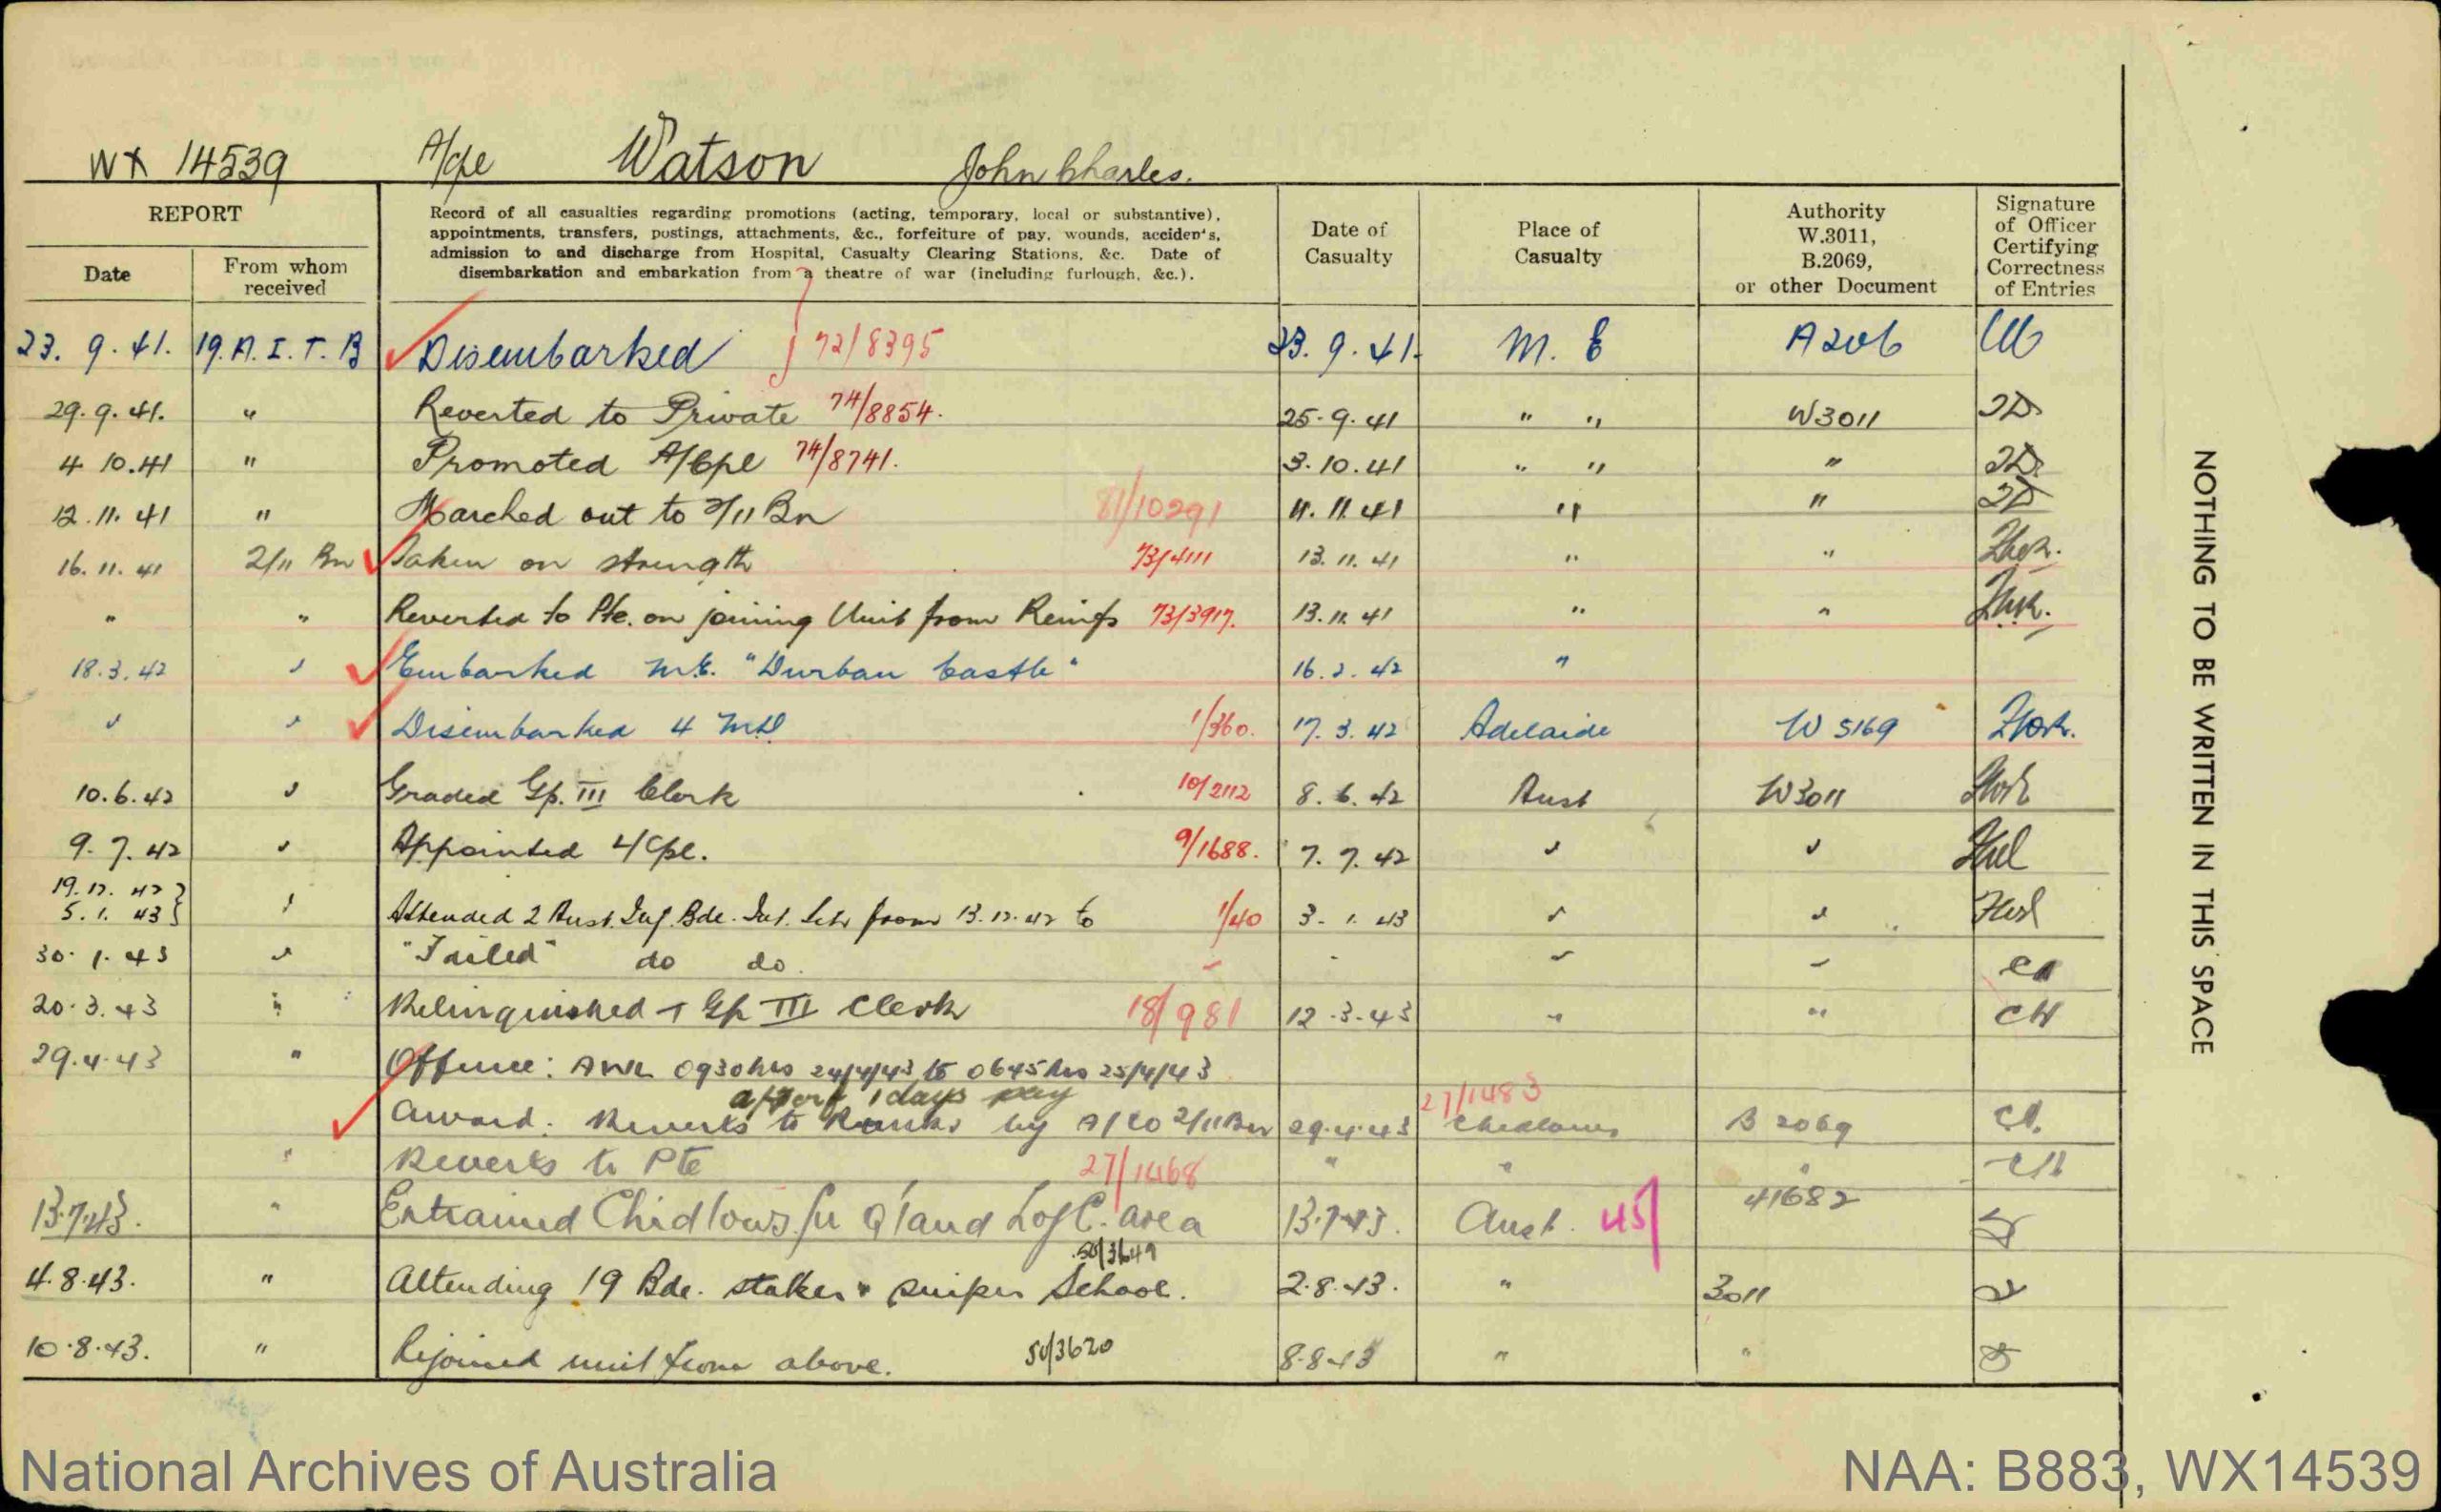 WX 14539 A/Cpl Watson John Charles.
REPORT
Date
From whom received
Record of all casualties regarding promotions (acting, temporary, local or substantive),
appointments, transfers, postings, attachments, &c., forfeiture of pay, wounds, accidents,
admission to and discharge from Hospital, Casualty Clearing Stations, &c. Date of
disembarkation and embarkation from a theatre of war (including furlough, &c.).
Date of Casualty
Place of Casualty
Authority W.3011, B.2069, or other Document
Signature of Officer Certifying Correctness of Entries
23. 9. 41. 19. A. I. T. B Disembarked 72/8395 23. 9. 41. M. E A206
29. 9. 41. " Reverted to Private 74/8854. 25. 9. 41 " " W3011
4 10. 41 " Promoted A/Cpl 74/8741. 3. 10. 41 " " "
12. 11. 41 " Marched out to 2/11 Bn 81/10291 11. 11. 41 " "
16. 11. 41 2/11 Bn Taken on strength 73/4111 13. 11. 41 " "
" " Reverted to Pte. on joining Unit from Reinfs 73/3917. 13. 11. 41 " "
18. 3. 42 " Embarked M.E. "Durban Castle" 16. 2. 42 "
" " Disembarked 4 MD 1/360. 17. 3. 42 Adelaide W 5169
10. 6. 42 " Graded Gp. III Clerk 10/2112 8. 6. 42 Aust W3011
9. 7. 42 " Appointed L/Cpl. 9/1688. 7. 7. 42 " "
19. 12. 42 }
5. 1. 43 } " Attended 2 Aust. Inf. Bde. Int. Sch from 13. 12. 42 to 1/40 3. 1. 43 " "
30. 1. 43 " "Failed" do do. " " " "
20. 3. 43 " Relinquished T Gp III Clerk 18/981 12. 3. 43 " "
29. 4. 43 " Offence: AWL 0930 hrs 24/4/43 to 0645 hrs 25/4/43
a/forf 1 days pay 27/1483
Award: Reverts to Ranks by A/CO 2/11 Bn 29. 4. 43 Chidlows B 2069
" Reverts to Pte 27/1468 " " "
13. 7. 43. " Entrained Chidlows for Q'land L of C. area 13. 7. 43. Aust. 45 41682
50/3649
4. 8. 43. " Attending 19 Bde. stalker & sniper School. 2. 8. 43. " 3011
10. 8. 43. " Rejoined unit from above. 50/3620 8. 8. 43 " "
NOTHING TO BE WRITTEN IN THIS SPACE
National Archives of Australia
NAA: B883, WX14539